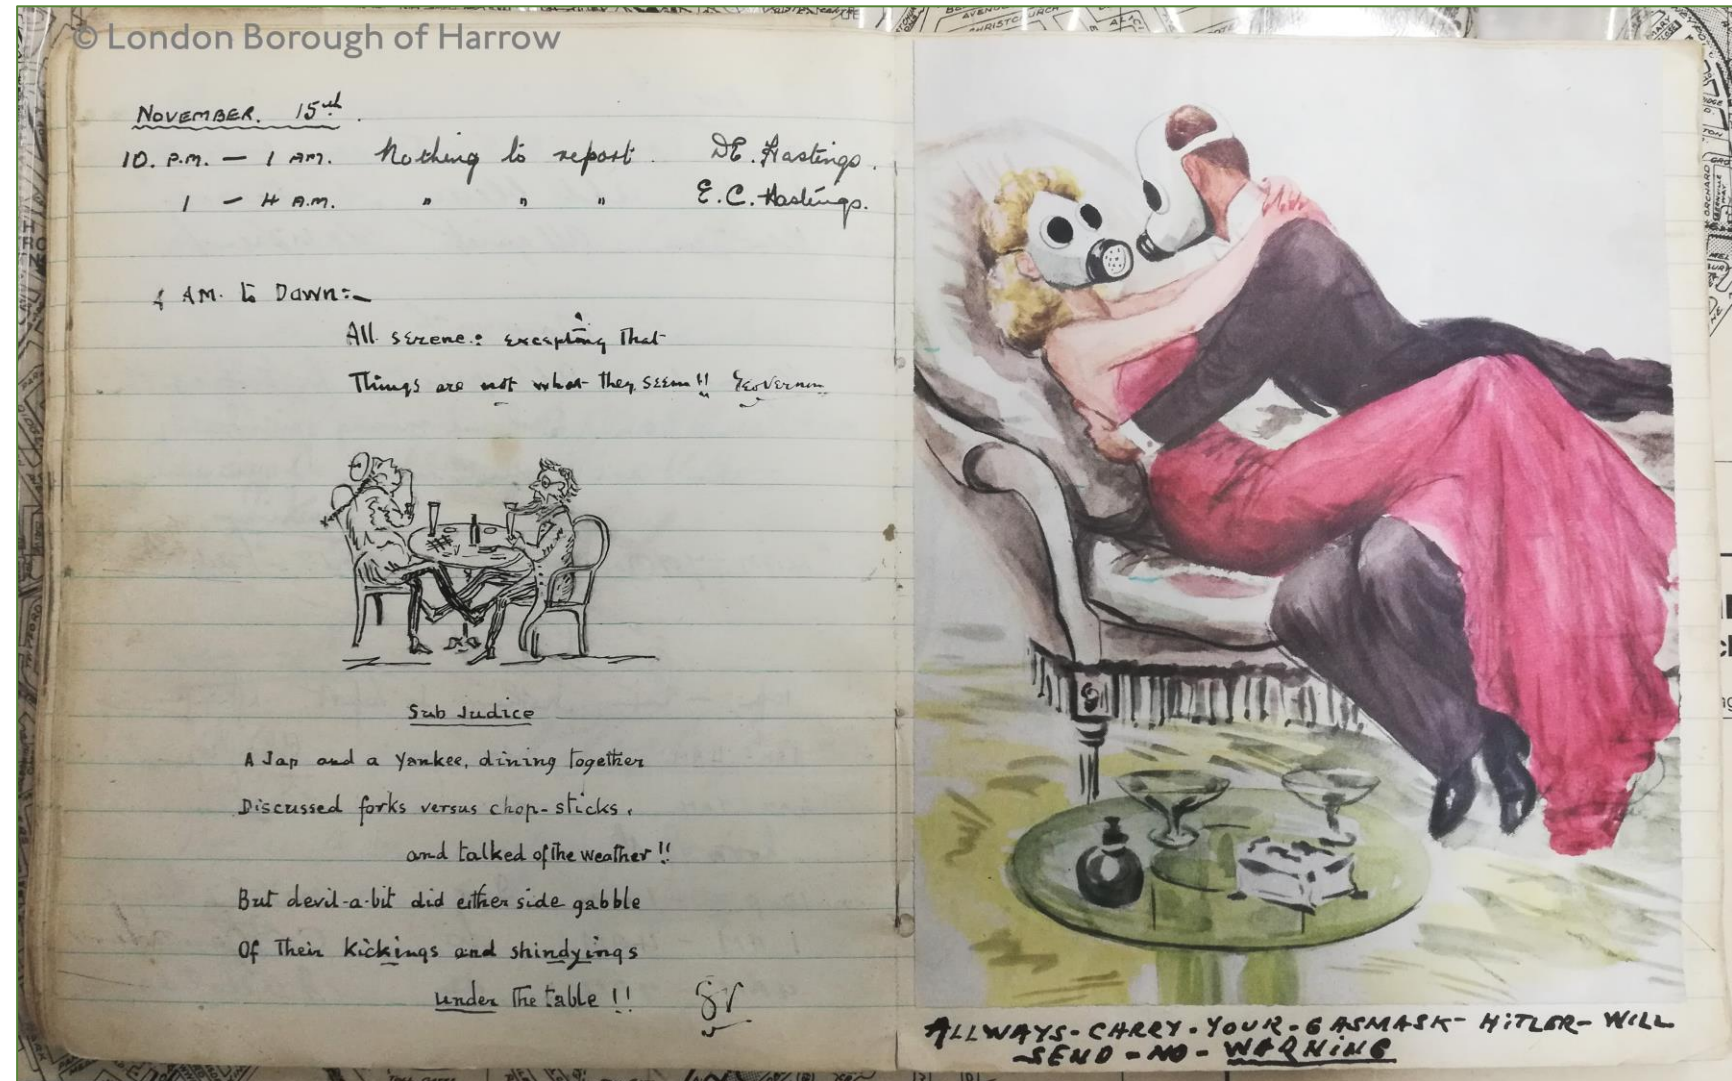 © London Borough of Harrow
NOVEMBER. 15th.
10. P.M. — 1 AM. Nothing to report. D.E. Hastings.
1 — 4 A.M. " " " E.C. Hastings.
4 AM. to Dawn:—
All serene: excepting that
Things are not what they seem!! Geo Vernon
Sub Judice
A Jap and a Yankee, dining together
Discussed forks versus chop-sticks,
and talked of the weather!!
But devil-a-bit did either side gabble
Of Their kickings and shindyings
under the table!!
GV
ALLWAYS - CARRY - YOUR - GASMASK - HITLER - WILL
- SEND - NO - WARNING